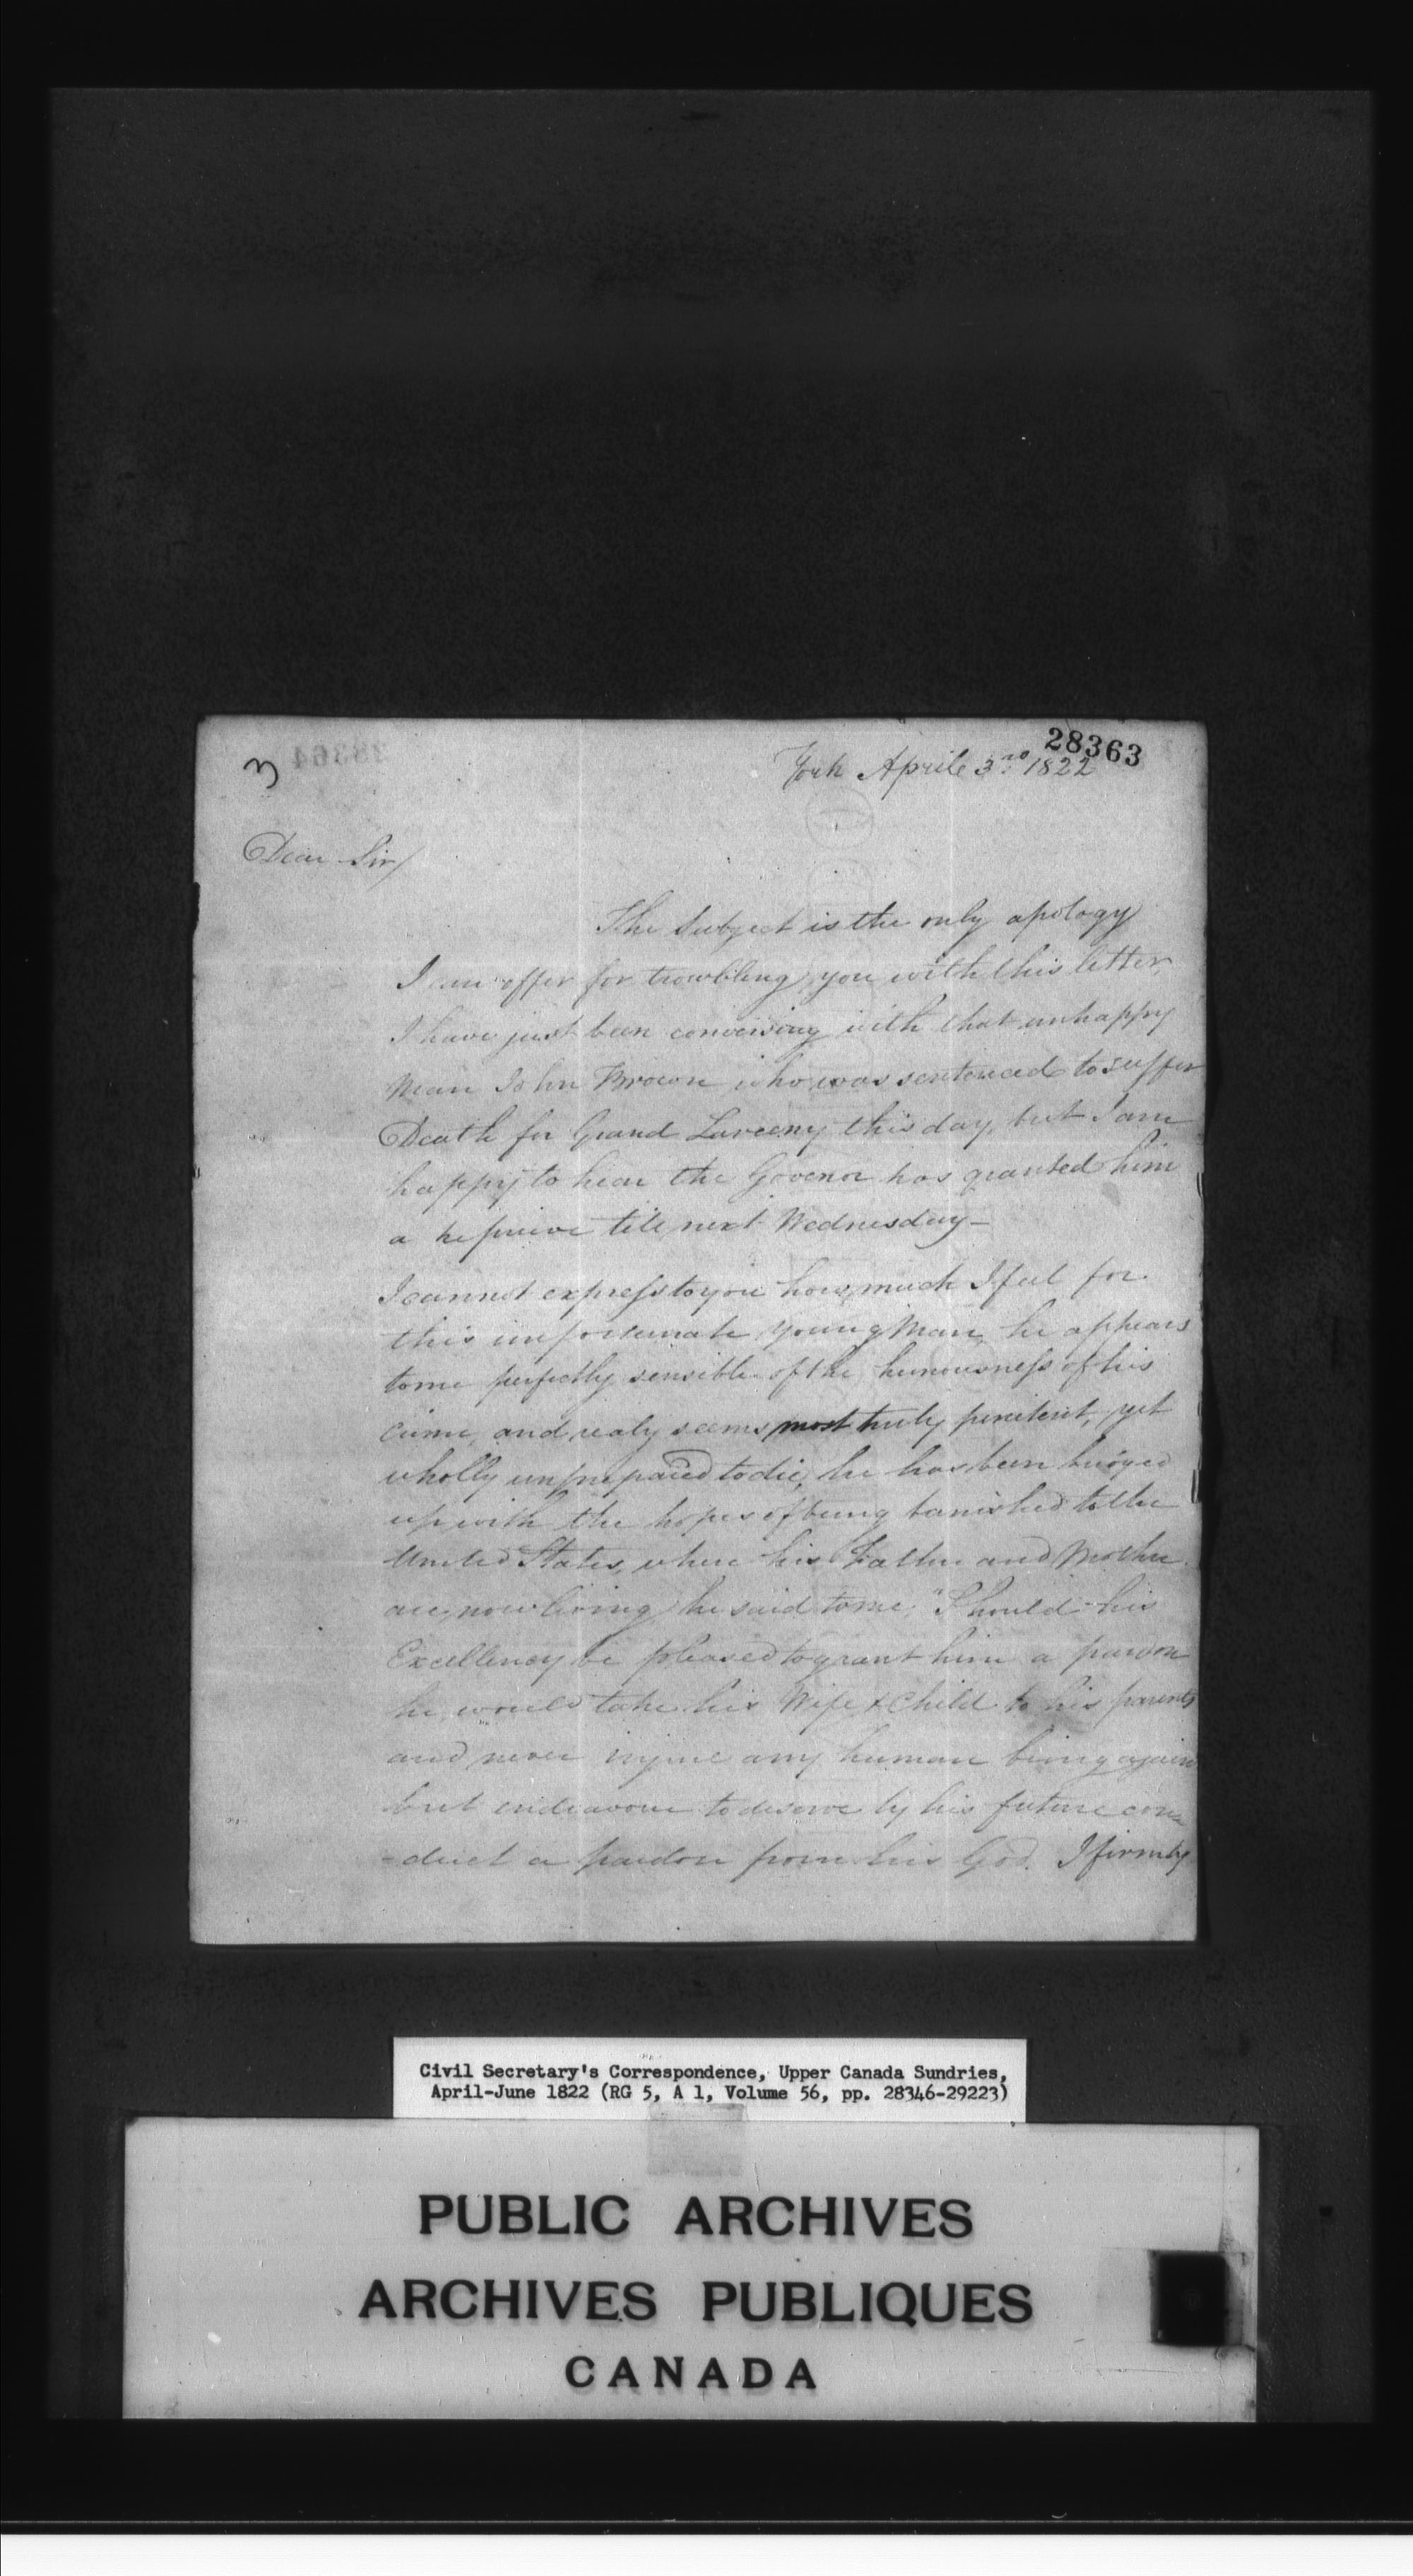 28363
3
York April 3rd 1822
Dear Sir/
The Subject is the only apology
I can offer for trowbling you with this letter,
I have just been conversing with that unhappy
Man John Brown who was sentenced to suffer
Death for Grand Larceny this day, but I am
happy to hear the Govenor has granted him
a repreive till next Wednesday—
I cannot express to you how much I feel for
this unfortunate young Man, he appears
to me perfectly sensible of the heniousness of his
crime, and realy seems most truly penitent, yet
wholly unprepared to die, he has been buoyed
up with the hopes of being banished to the
United States, where his Father and Mother
are now living, he said to me, "Should his
Excellency be pleased to grant him a pardon
he would take his Wife & Child to his parents
and never injure any human being again
but endeavour to deserve by his future con
-duct a pardon from his God. I firmly
Civil Secretary's Correspondence, Upper Canada Sundries,
April-June 1822 (RG 5, A 1, Volume 56, pp. 28346-29223)
PUBLIC ARCHIVES
ARCHIVES PUBLIQUES
CANADA